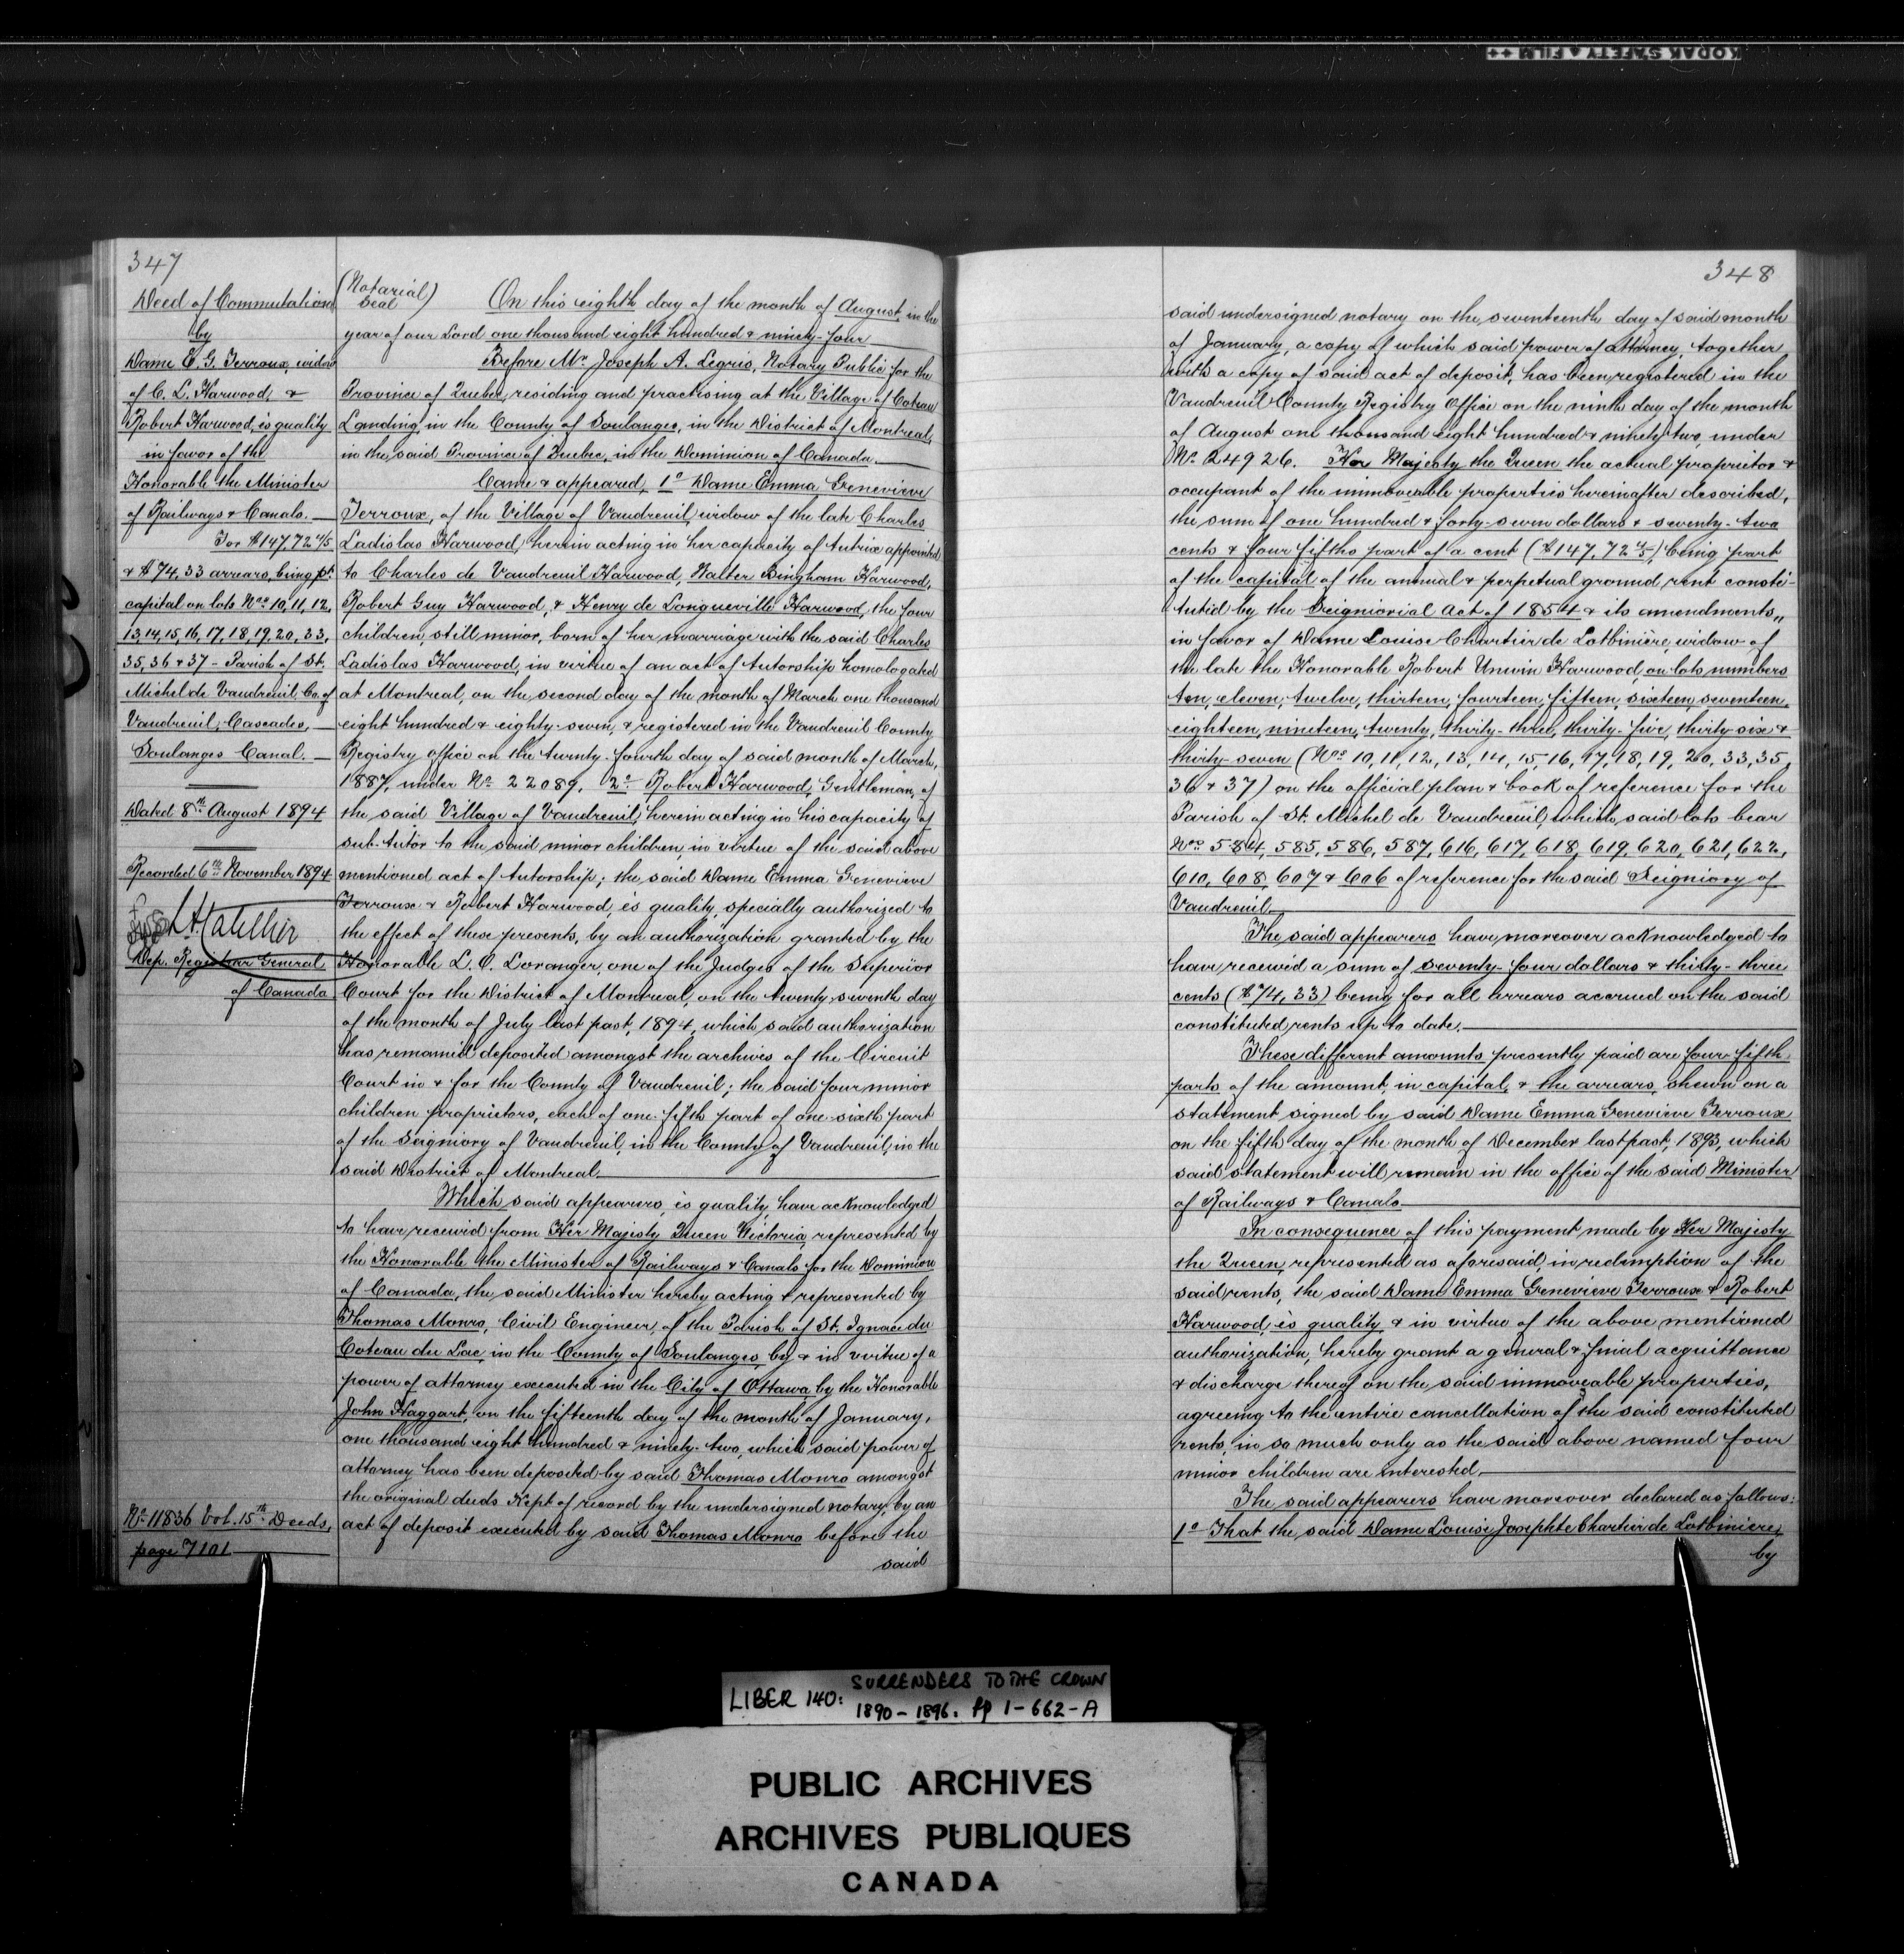 KODAK SAFETY FILM
347
Deed of Commutation
by
Dame E. G. Terroux, widow
of C. L. Harwood, &
Robert Harwood, ès qualité
in favor of the
Honorable the Minister
of Railways & Canals.
For $147.72 4/5
& $74.33 arrears, being pt.
capital on lots Nos 10, 11, 12,
13, 14, 15, 16, 17, 18, 19, 20, 33,
35, 36 & 37 - Parish of St.
Michel de Vaudreuil, Co. of
Vaudreuil, Cascades,
Soulanges Canal.
Dated 8th August 1894
Recorded 6th November 1894
Dep. Registrar General
of Canada
No 11836 Vol. 15th Deeds,
page 7101
(Notarial Seal) On this eighth day of the month of August, in the
year of our Lord one thousand eight hundred & ninety-four
Before Mr. Joseph A. Legris, Notary Public for the
Province of Quebec, residing and practising at the Village of Coteau
Landing, in the County of Soulanges, in the District of Montreal,
in the said Province of Quebec, in the Dominion of Canada.
Came & appeared, 1o Dame Emma Genevieve
Terroux, of the Village of Vaudreuil, widow of the late Charles
Ladislas Harwood, herein acting in her capacity of tutrix appointed
to Charles de Vaudreuil Harwood, Walter Bingham Harwood,
Robert Guy Harwood, & Henry de Longueville Harwood, the four
children, still minor, born of her marriage with the said Charles
Ladislas Harwood, in virtue of an act of tutorship homologated
at Montreal, on the second day of the month of March one thousand
eight hundred & eighty-seven, & registered in the Vaudreuil County
Registry office on the twenty-fourth day of said month of March,
1887, under No 22089. 2o Robert Harwood, Gentleman, of
the said Village of Vaudreuil, herein acting in his capacity of
sub-tutor to the said minor children, in virtue of the said above
mentioned act of tutorship; the said Dame Emma Genevieve
Terroux & Robert Harwood, ès qualité, specially authorized to
the effect of these presents, by an authorization granted by the
Honorable L. O. Loranger, one of the Judges of the Superior
Court for the District of Montreal, on the twenty-seventh day
of the month of July last past, 1894, which said authorization
has remained deposited amongst the archives of the Circuit
Court in & for the County of Vaudreuil; the said four minor
children proprietors, each of one-fifth part of one-sixth part
of the Seigniory of Vaudreuil, in the County of Vaudreuil, in the
said District of Montreal.
Which said appearers, ès qualité, have acknowledged
to have received from Her Majesty Queen Victoria, represented by
the Honorable the Minister of Railways & Canals for the Dominion
of Canada, the said Minister hereby acting & represented by
Thomas Monro, Civil Engineer, of the Parish of St. Ignace du
Coteau du Lac, in the County of Soulanges, by & in virtue of a
power of attorney executed in the City of Ottawa by the Honorable
John Haggart, on the fifteenth day of the month of January,
one thousand eight hundred & ninety-two, which said power of
attorney has been deposited by said Thomas Monro amongst
the original deeds kept of record by the undersigned notary, by an
act of deposit executed by said Thomas Monro before the
said
348
said undersigned notary on the seventeenth day of said month
of January, a copy of which said power of attorney, together
with a copy of said act of deposit, has been registered in the
Vaudreuil County Registry Office on the ninth day of the month
of August one thousand eight hundred & ninety-two, under
No 24926. Her Majesty the Queen the actual proprietor &
occupant of the immoveable properties hereinafter described,
the sum of one hundred & forty-seven dollars & seventy-two
cents & four fifths part of a cent ($147.72 4/5) being part
of the capital of the annual & perpetual ground rent consti-
tuted by the Seigniorial Act of 1854 & its amendments,,
in favor of Dame Louise Chartier de Lotbinière, widow of
the late the Honorable Robert Unwin Harwood, on lots numbers
ten, eleven, twelve, thirteen, fourteen, fifteen, sixteen, seventeen,
eighteen, nineteen, twenty, thirty-three, thirty-five, thirty-six &
thirty-seven (Nos 10, 11, 12, 13, 14, 15, 16, 17, 18, 19, 20, 33, 35,
36 & 37) on the official plan & book of reference for the
Parish of St. Michel de Vaudreuil, which said lots bear
Nos 584, 585, 586, 587, 616, 617, 618, 619, 620, 621, 622,
610, 608, 607 & 606 of reference for the said Seigniory of
Vaudreuil.
The said appearers have moreover acknowledged to
have received a sum of seventy-four dollars & thirty-three
cents ($74.33) being for all arrears accrued on the said
constituted rents up to date.
These different amounts presently paid are four-fifth
parts of the amount in capital, & the arrears, shewn on a
statement signed by said Dame Emma Genevieve Terroux
on the fifth day of the month of December last past, 1893, which
said statement will remain in the office of the said Minister
of Railways & Canals
In consequence of this payment made by Her Majesty
the Queen, represented as aforesaid, in redemption of the
said rents, the said Dame Emma Genevieve Terroux & Robert
Harwood, ès qualité, & in virtue of the above mentioned
authorization, hereby grant a general & final acquittance
& discharge thereof on the said immoveable properties,
agreeing to the entire cancellation of the said constituted
rents, in so much only as the said above named four
minor children are interested.
The said appearers have moreover declared as follows:
1o That the said Dame Louise Josephte Chartier de Lotbiniere,
by
LIBER 140: SURRENDERS TO THE CROWN
1890-1896. pp 1-662-A
PUBLIC ARCHIVES
ARCHIVES PUBLIQUES
CANADA